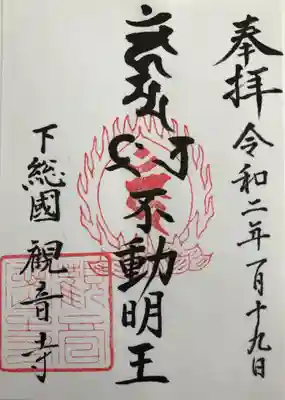 奉拝
令和二年一月十九日
不動明王
下総國
観音寺